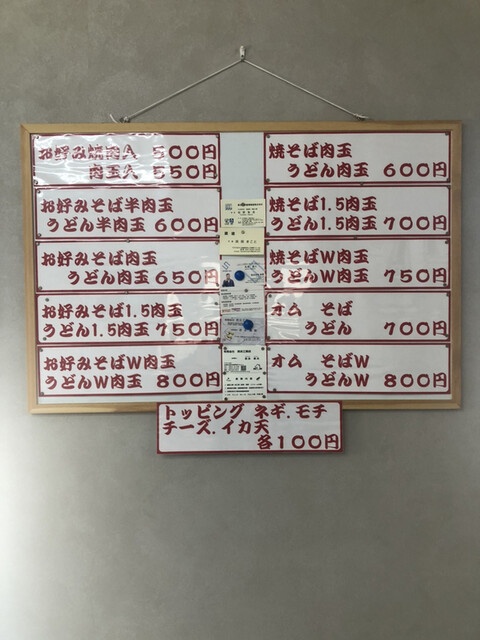 お好み焼肉入 500円
肉玉入 550円
お好みそば半肉玉
うどん半肉玉 600円
お好みそば肉玉
うどん肉玉 650円
お好みそば1.5肉玉
うどん1.5肉玉 750円
お好みそばW肉玉
うどんW肉玉 800円
焼そば肉玉
うどん肉玉 600円
焼そば1.5肉玉
うどん1.5肉玉 700円
焼そばW肉玉
うどんW肉玉 750円
オム そば
うどん 700円
オム そばW
うどんW 800円
トッピング ネギ.モチ
チーズ.イカ天
各100円